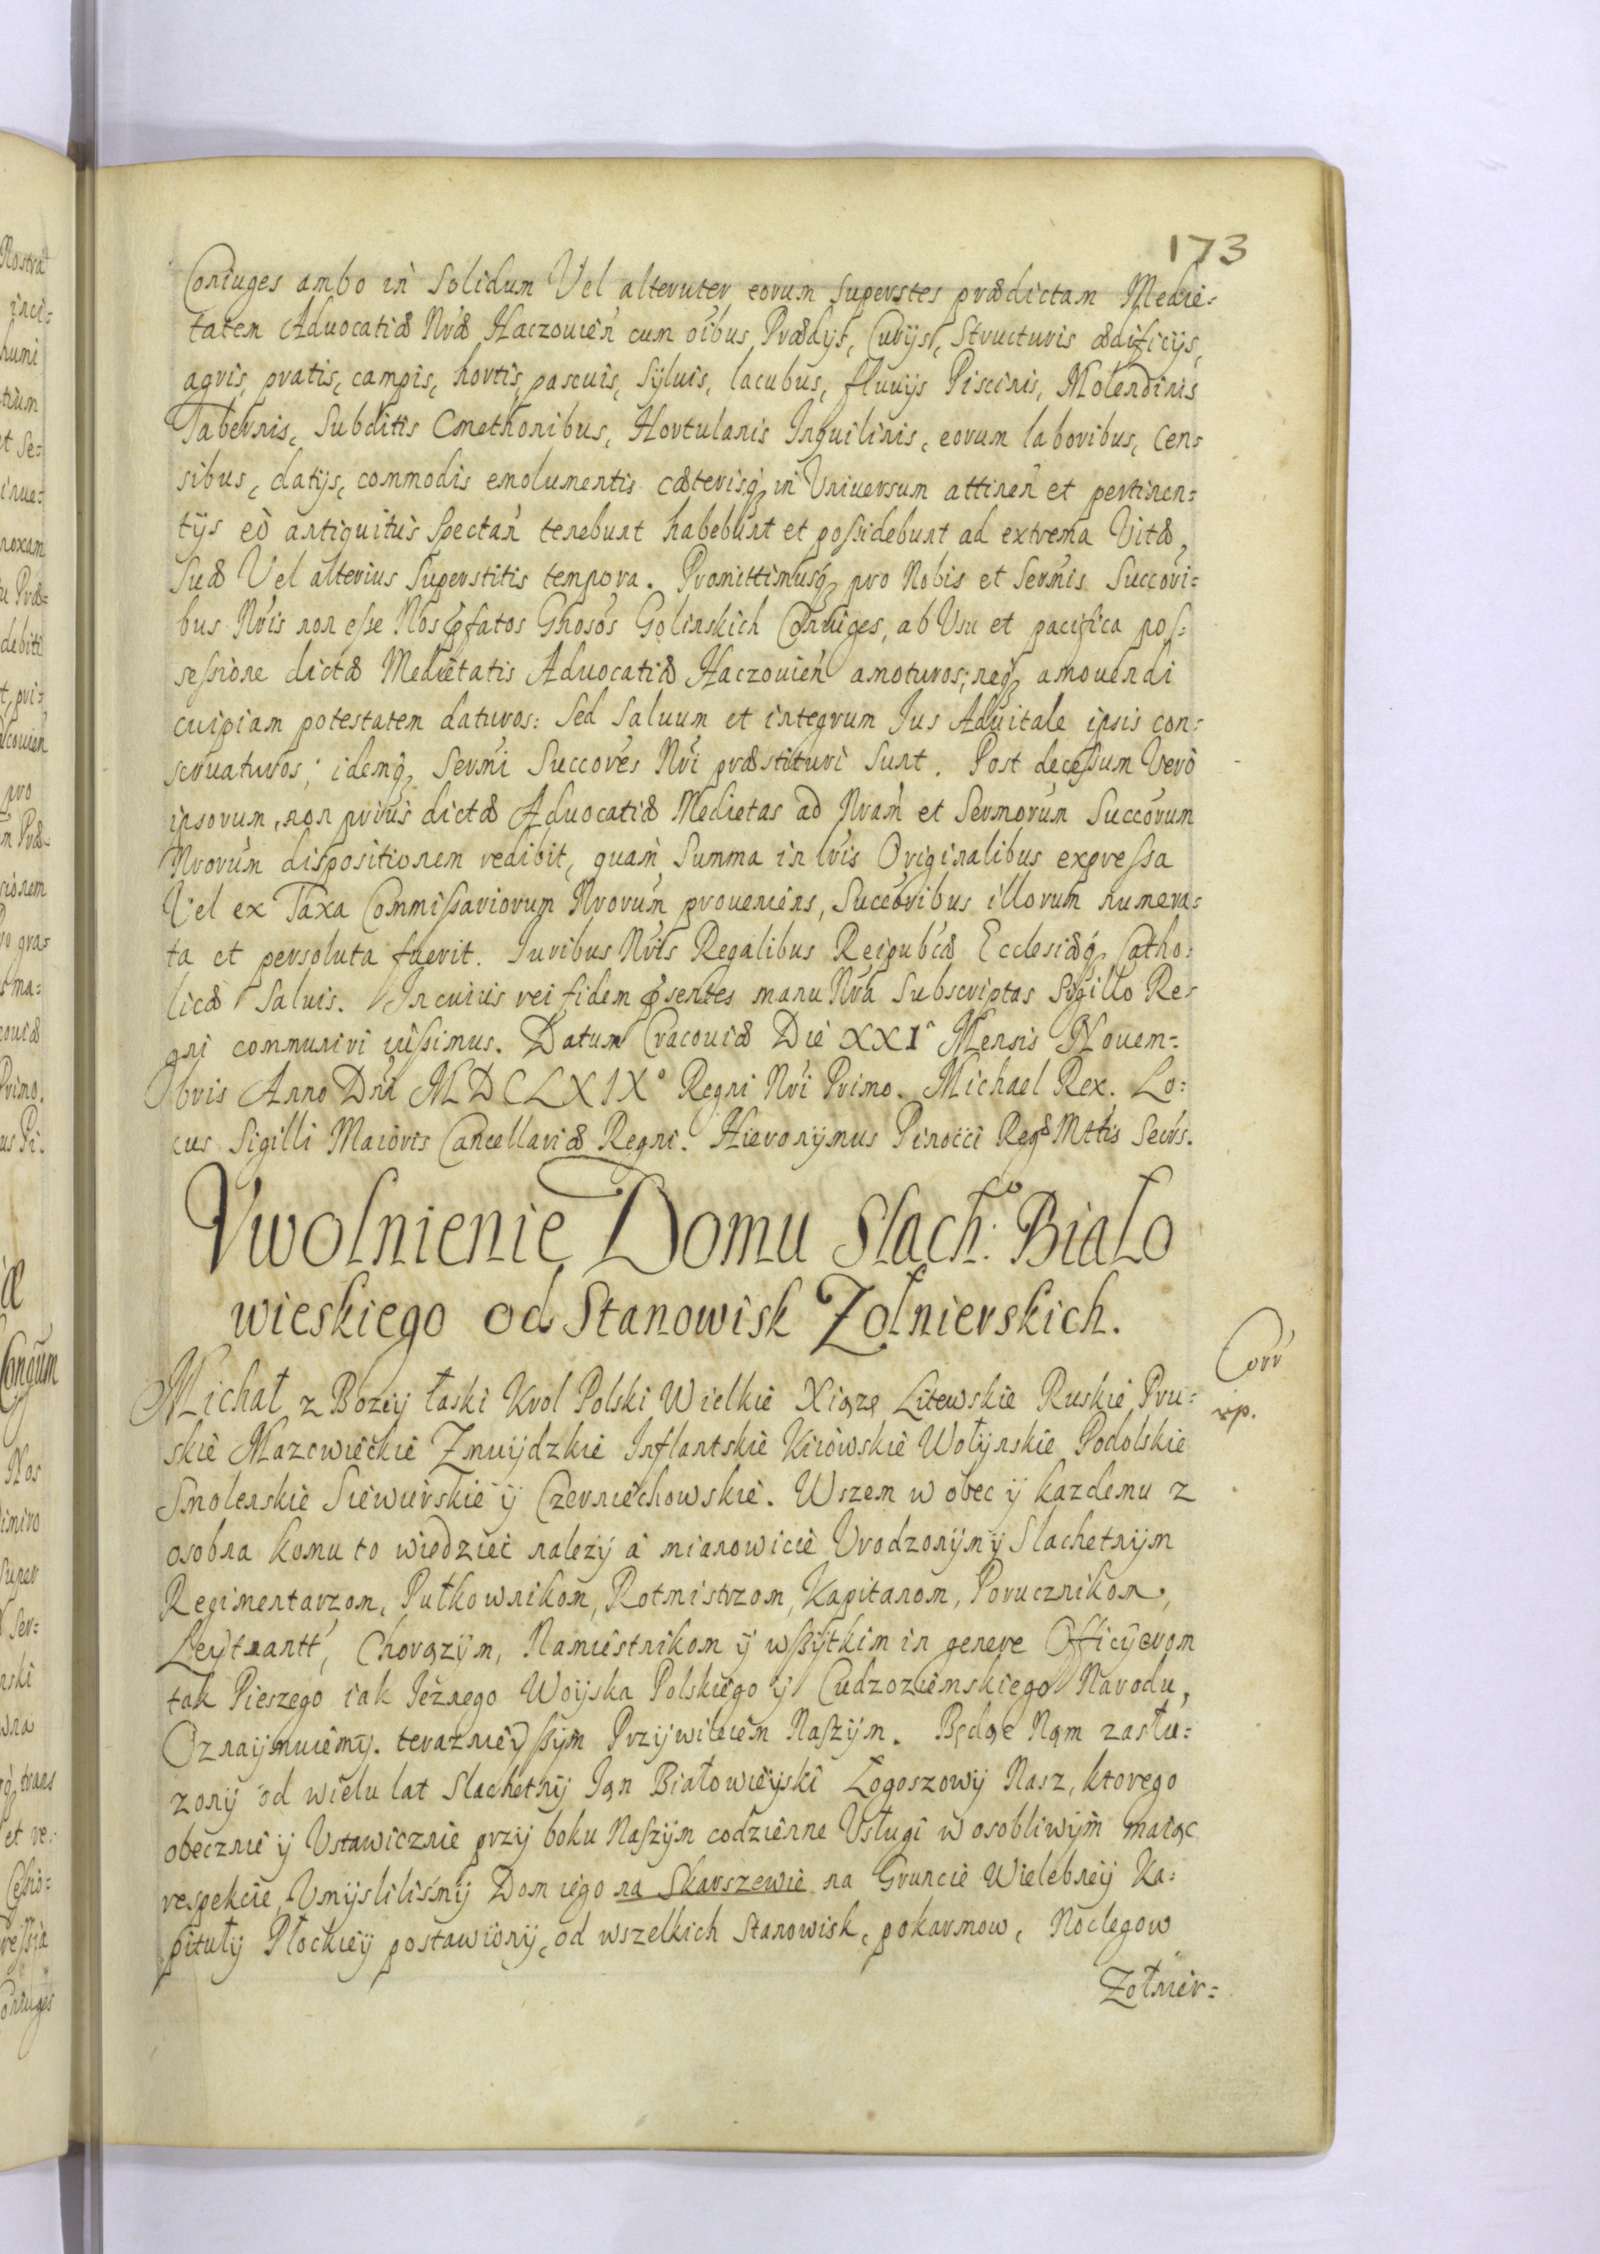 173
Coniuges ambo in Solidum Vel alteruter eorum Superstes prædictam Medie=
tatem Aduocatiæ Nræ Haczouień cum oibus Prædys, Curys, Structuris ædificijs,
agris, pratis, campis, hortis, pascuis, Syluis, lacubus, fluuijs Piscinis, Molendinis
Tabernis, Subditis Cmethonibus, Hortulanis Inquilinis, eorum laboribus, Cen=
sibus, datijs, commodis emolumentis cæterisq in Vniuersum attineń et pertinen=
tijs eò antiquitùs Spectań tenebunt habebunt et possidebunt ad extrema Vitæ,
Suæ Vel alterius Superstitis tempora. Promittimusq pro Nobis et Sermis Succori=
bus Nris non esse Nos pfatos Ghosos Golinskich Coniuges, ab Vsu et pacifica pos=
sessione dictæ Medietatis Aduocatiæ Haczouień amoturos; neq amouendi
cuipiam potestatem daturos: Sed Saluum et integrum Ius Aduitale ipsis con=
seruaturos; idemq Sermi Succores Nri præstituri Sunt. Post decessum Verò
ipsorum, non prius dictæ Aduocatiæ Medietas ad Nram et Sermorum Succorum
Nrorum dispositionem redibit, quam Summa in lris Originalibus expressa
Vel ex Taxa Commissariorum Nrorum proueniens, Succoribus illorum numera=
ta et persoluta fuerit. Iuribus Nris Regalibus Reipubcæ Ecclesiæq Catho=
licæ Saluis. In cuius rei fidem psentes manu Nra Subscriptas Sigillo Re=
gni communiri iussimus. Datum Cracouiæ Die XXI Mensis Nouem=
bris Anno Dni MDCLXIXº Regni Nri Primo. Michael Rex. Lo=
cus Sigilli Maioris Cancellariæ Regni. Hieronijmus Pinocci Regæ Mttis Secrs.
Vwolnienie Domu Slach:º Biało
wieskiego od Stanowisk Zołnierskich.
Corr
rp.
Michał z Bozey łaski Krol Polski Wielkie Xiąze Litewskie Ruskie, Pru=
skie Mazowieckie Zmuijdzkie Inflantskie Kiiowskie Wołynskie Podolskie
Smolenskie Siewierskie ÿ Czerniechowskie. Wszem w obec ÿ kazdemu z
osobna komu to wiedziec nalezÿ a mianowicie Vrodzonijm ÿ Slachetnijm
Regimentarzom, Pułkownikom, Rotmistrzom, Kapitanom, Porucznikom,
Leÿtnantt, Chorązijm, Namiestnikom ÿ wszÿtkim in genere Officÿerom
tak Pieszego iak Ieznego Woijska Polskiego ÿ Cudzoziemskiego Narodu,
Oznaijmuiemÿ. teraznieÿszÿm Przÿwileiem Naszÿm. Będąc Nąm zasłu=
zonÿ od wielu lat Slachetnÿ Ian Białowieÿski Łogoszowÿ Nasz, ktorego
obecznie ÿ Vstawicznie przÿ boku Naszÿm codzienne Vsługi w osobliwÿm maiąc
respekcie, Vmÿslilismÿ Dom iego na Skarszewie na Gruncie Wielebneÿ Ka=
pitułÿ Płockieÿ postawionÿ, od wszelkich Stanowisk, pokarmow, Noclegow
Zołnier=